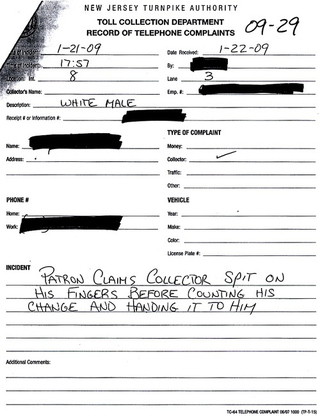 NEW JERSEY TURNPIKE AUTHORITY
TOLL COLLECTION DEPARTMENT
RECORD OF TELEPHONE COMPLAINTS
09-29
1-21-09 Date Received: 1-22-09
17:57 By:
Int. 8 Lane 3
Collector's Name: Emp. #:
Description: WHITE MALE
Receipt # or Information #:
TYPE OF COMPLAINT
Name: Money:
Address: Collector: ✓
Traffic:
Other:
PHONE # VEHICLE
Home: Year:
Work: Make:
Color:
License Plate #:
INCIDENT
PATRON CLAIMS COLLECTOR SPIT ON
HIS FINGERS BEFORE COUNTING HIS
CHANGE AND HANDING IT TO HIM
Additional Comments:
TC-64 TELEPHONE COMPLAINT